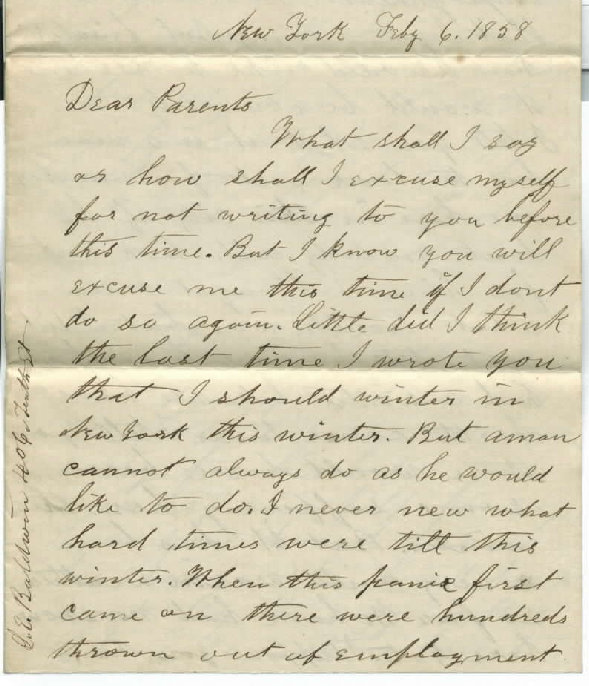 New York Feby 6. 1858
Dear Parents
What shall I say
or how shall I excuse myself
for not writing to you before
this time. But I know you will
excuse me this time if I dont
do so again. Little did I think
the last time I wrote you
that I should winter in
New York this winter. But a man
cannot always do as he would
like to do. I never new what
hard times were till this
winter. When this panic first
came on there were hundreds
thrown out of employment
Baldwin 406 Tenth St